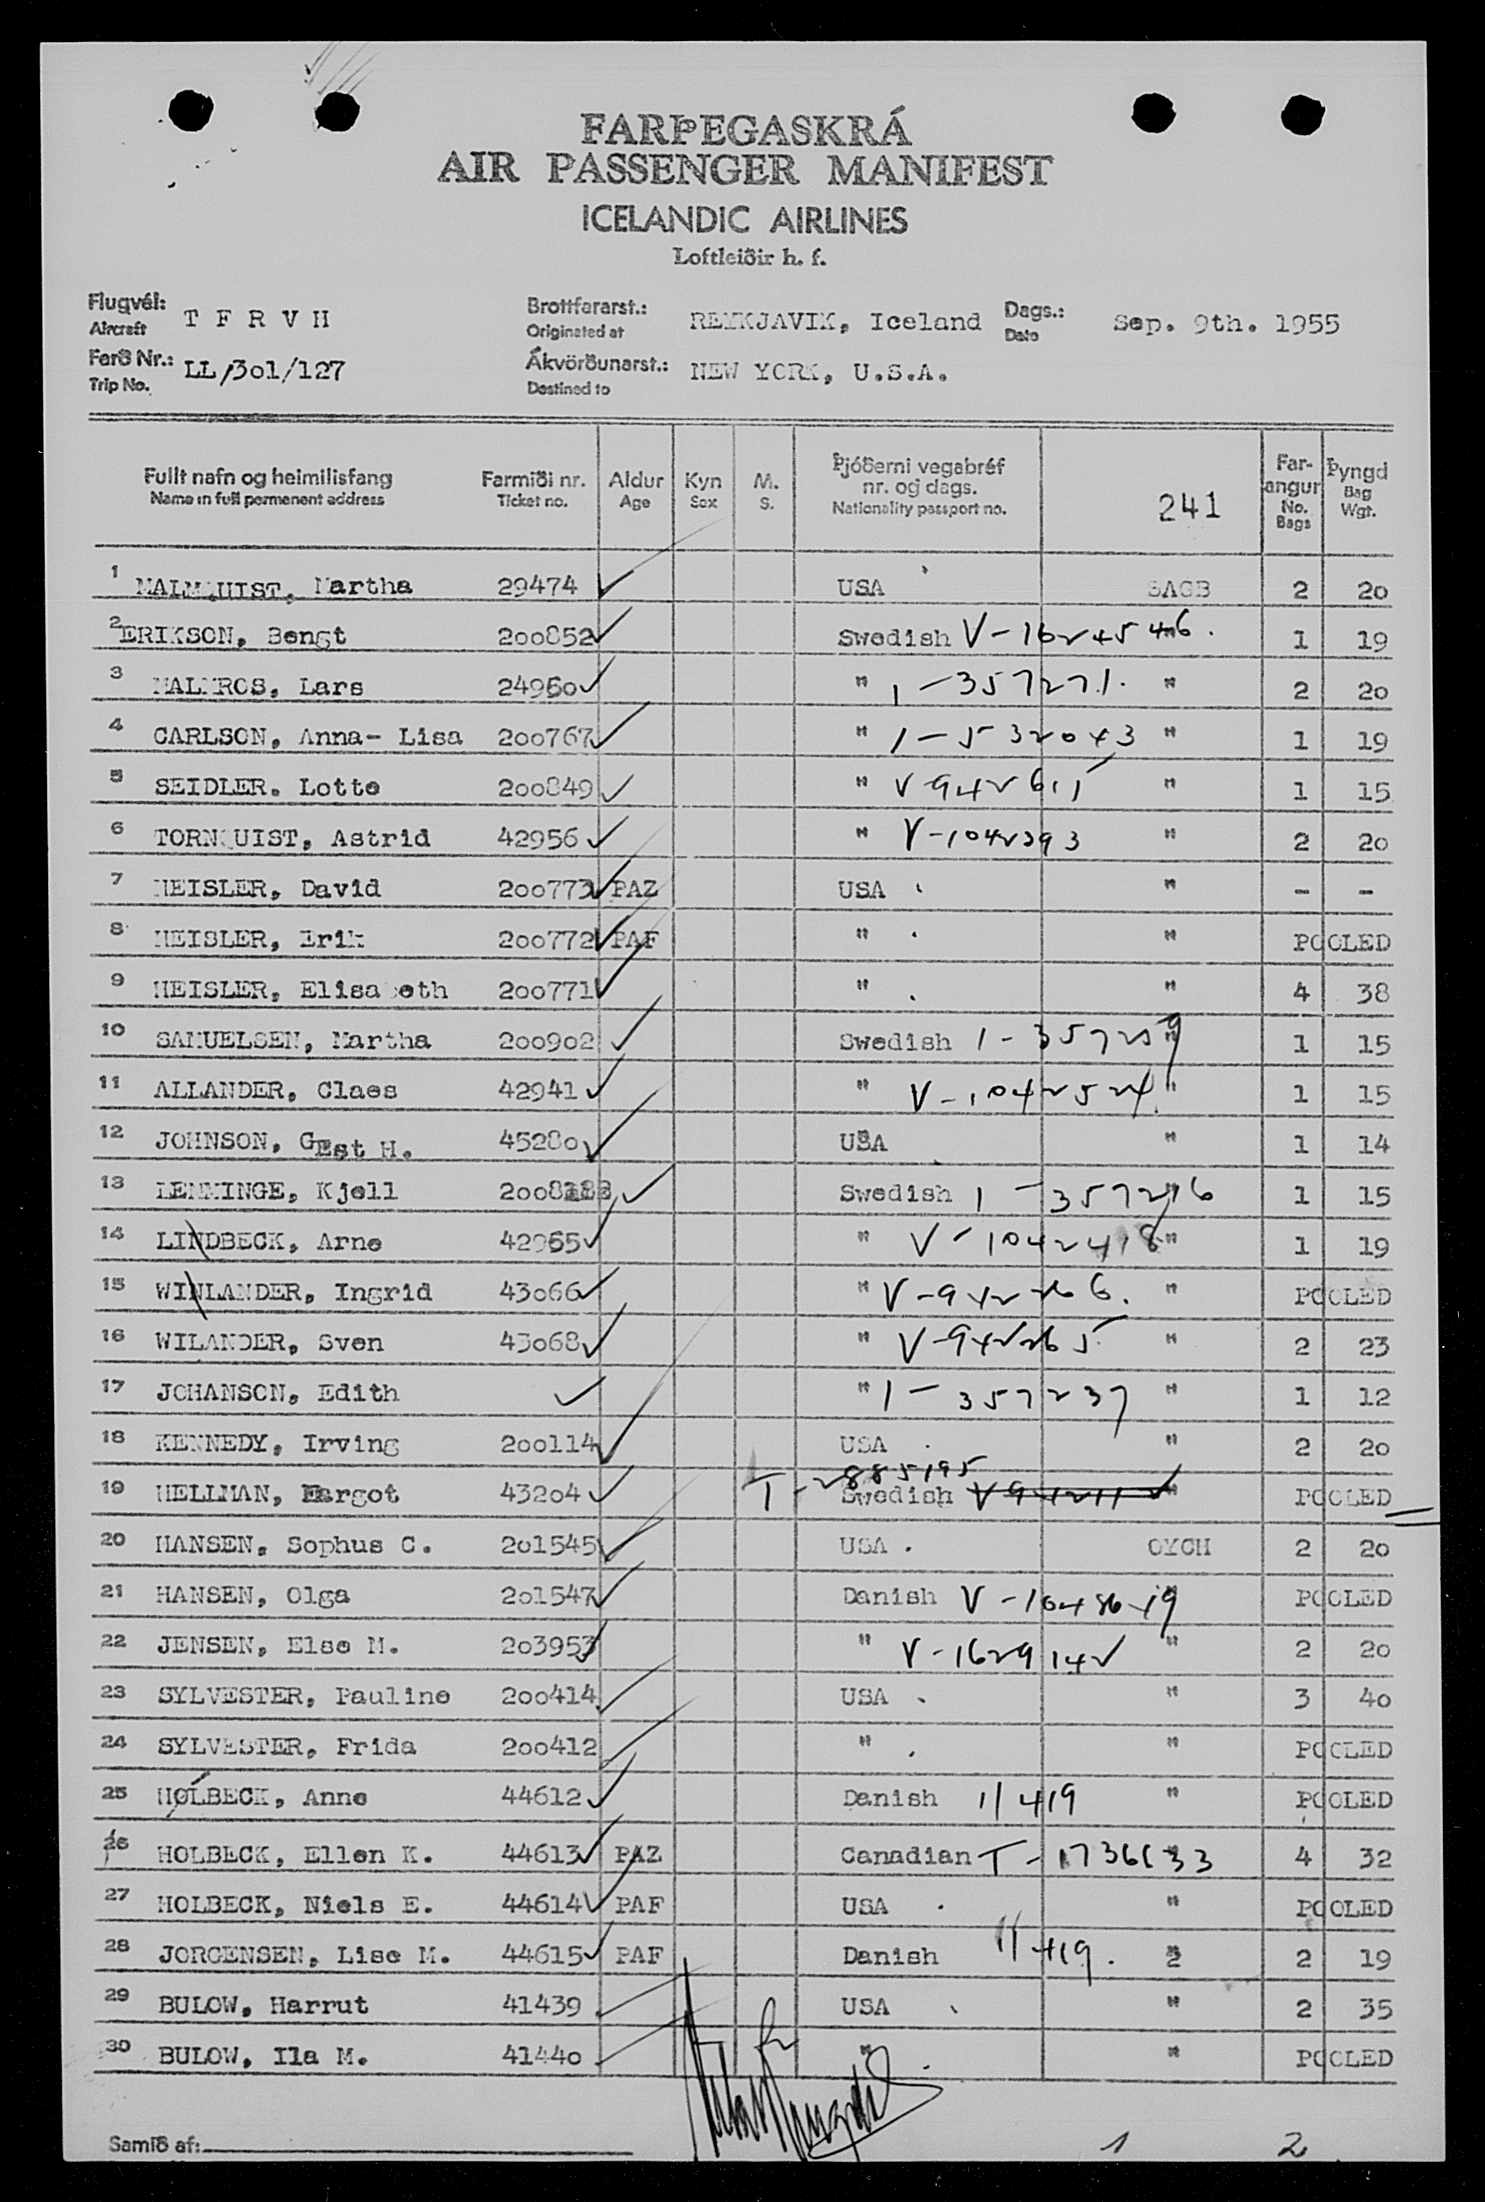 FARÞEGASKRÁ
AIR PASSENGER MANIFEST
ICELANDIC AIRLINES
Loftleiðir h. f.
Flugvél: T F R V H Brottfararst.: REYKJAVIK, Iceland Dags.: Sep. 9th. 1955
Aircraft Originated at Date
Ferð Nr.: LL/301/127 Ákvörðunarst.: NEW YORK, U.S.A.
Trip No. Destined to
Fullt nafn og heimilisfang Farmiði nr. Aldur Kyn M. Þjóðerni vegabréf nr. og dags. 241 Far-angur Þyngd
Name in full permenent address Ticket no. Age Sex S. Nationality passport no. No. Bags Bag Wgt.
1 MALMQUIST, Martha 29474 USA SAGB 2 20
2 ERIKSON, Bengt 200852 Swedish V-1624546. " 1 19
3 MALMROS, Lars 24960 " 1-357271. " 2 20
4 CARLSON, Anna- Lisa 200767 " 1-532043 " 1 19
5 SEIDLER. Lotte 200849 " V-942615 " 1 15
6 TORNQUIST, Astrid 42956 " V-1042393 " 2 20
7 HEISLER, David 200773 PAZ USA " - -
8 HEISLER, Erik 200772 PAF " " POOLED
9 HEISLER, Elisabeth 200771 " " 4 38
10 SAMUELSEN, Martha 200902 Swedish 1-357259 " 1 15
11 ALLANDER, Claes 42941 " V-1042524. " 1 15
12 JOHNSON, GEst H. 45280 USA " 1 14
13 LEMMINGE, Kjell Swedish 1-357216 " 1 15
14 LINDBECK, Arne 42965 " V-1042418 " 1 19
15 WINLANDER, Ingrid 43066 " V-942266. " POOLED
16 WILANDER, Sven 43068 " V-942265 " 2 23
17 JOHANSON, Edith " 1-357237 " 1 12
18 KENNEDY, Irving 200114 USA " 2 20
T-2885195
19 HELLMAN, Margot 43204 Swedish V942211 " POOLED
20 HANSEN, Sophus C. 201545 USA OYCH 2 20
21 HANSEN, Olga 201547 Danish V-1648649 " POOLED
22 JENSEN, Else M. 203953 " V-1629142 " 2 20
23 SYLVESTER, Pauline 200414 USA " 3 40
24 SYLVESTER, Frida 200412 " " POOLED
25 HOLBECK, Anne 44612 Danish 11/419 " POOLED
26 HOLBECK, Ellen K. 44613 PAZ Canadian T-1736633 " 4 32
27 HOLBECK, Niels E. 44614 PAF USA " POOLED
28 JORGENSEN, Lise M. 44615 PAF Danish 11/419. 2 2 19
29 BULOW, Harrut 41439 USA " 2 35
30 BULOW, Ila M. 41440 " " POOLED
Samið af:
1 2